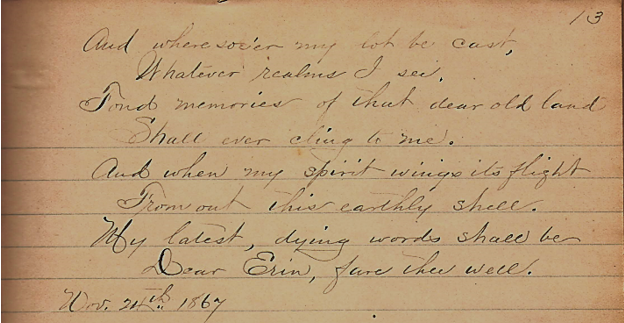 13
And wheresoe'er my lot be cast,
Whatever realms I see,
Fond memories of that dear old land
Shall ever cling to me.
And when my spirit wings its flight
From out this earthly shell.
My latest, dying words shall be
Dear Erin, fare thee well.
Nov. 24th. 1867